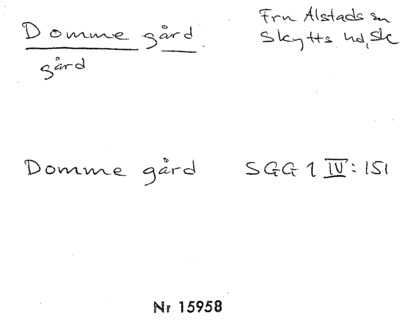 Domme gård
gård
Frn Alstads sn
Skytts hd, Sk
Domme gård
SGG 1 IV: 151
Nr 15958